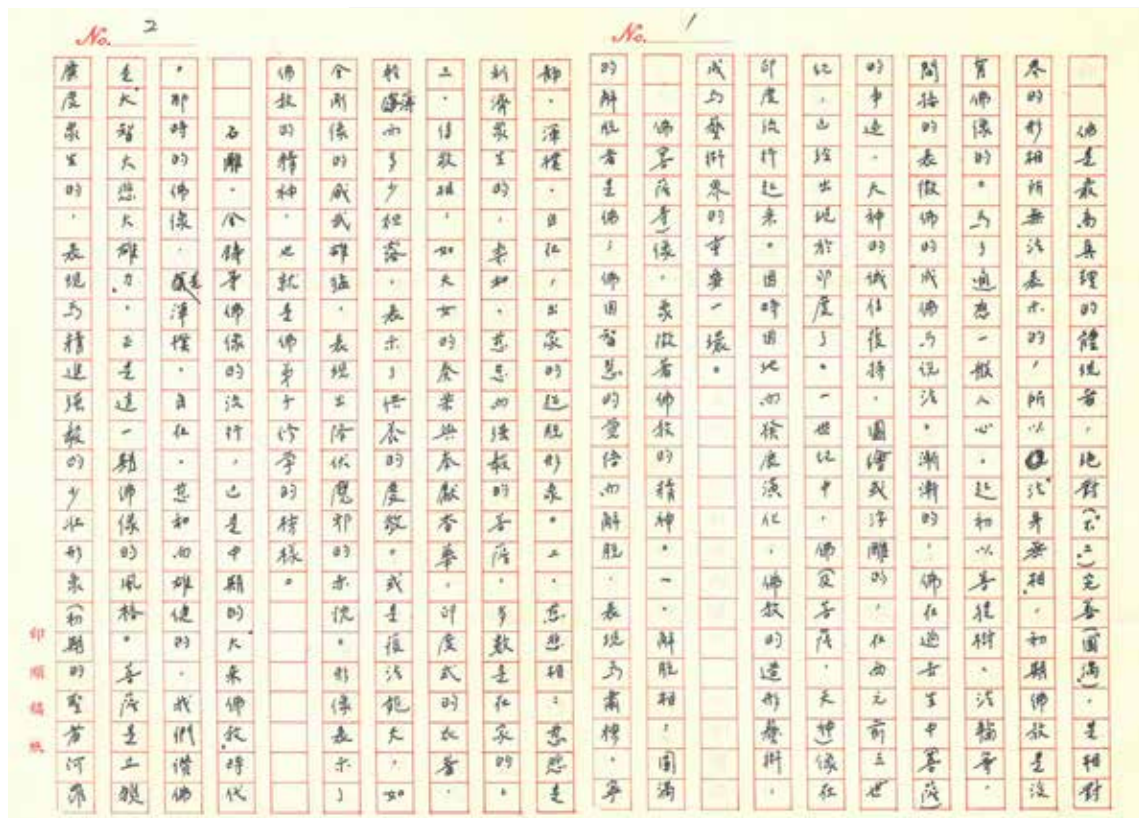 No. 1
佛是最高真理的體現者,絕對(不二)完善(圓滿),是相對
界的形相所無法表示的,所以「法身無相」,初期佛教是沒
有佛像的。為了適應一般人心,起初以菩提樹、法輪等,
間接的表徵佛的成佛與說法。漸漸的,佛在過去生中(菩薩)
的事迹,天神的誠信護持,圖繪或浮雕的,在西元前三世
紀,已經出現於印度了。一世紀中,佛(及菩薩、天神)像在
印度流行起來。因時因地而發展演化,佛教的造形藝術,
成為藝術界的重要一環。
佛(菩薩等)像,象徵着佛教的精神。一、解脫相:圓滿
的解脫者是佛,佛因智慧的覺悟而解脫,表現為肅穆、寧
No. 2
靜、渾樸、自在,出家的超脫形象。二、慈悲相:慈悲是
利濟眾生的,柔和、慈忍而強毅的菩薩,多數是在家的。
三、信敬相:如天女的奏樂與奉獻香華,印度式的衣着,
輕薄而多少裸露,表示了供養的虔敬。或是護法龍天,如
金剛像的威武雄猛,表現出降伏魔邪的示現。形像表示了
佛教的精神,也就是佛弟子修學的榜樣。
石雕、金鑄等佛像的流行,已是中期的「大乘佛教」時代
。那時的佛像,是渾樸、自在、慈和而雄健的。我們讚佛
是「大智大悲,大雄力」,正是這一期佛像的風格。菩薩是正發
廣度眾生的,表現為精進強毅的少壯形象(初期的聖者阿羅
印順稿紙